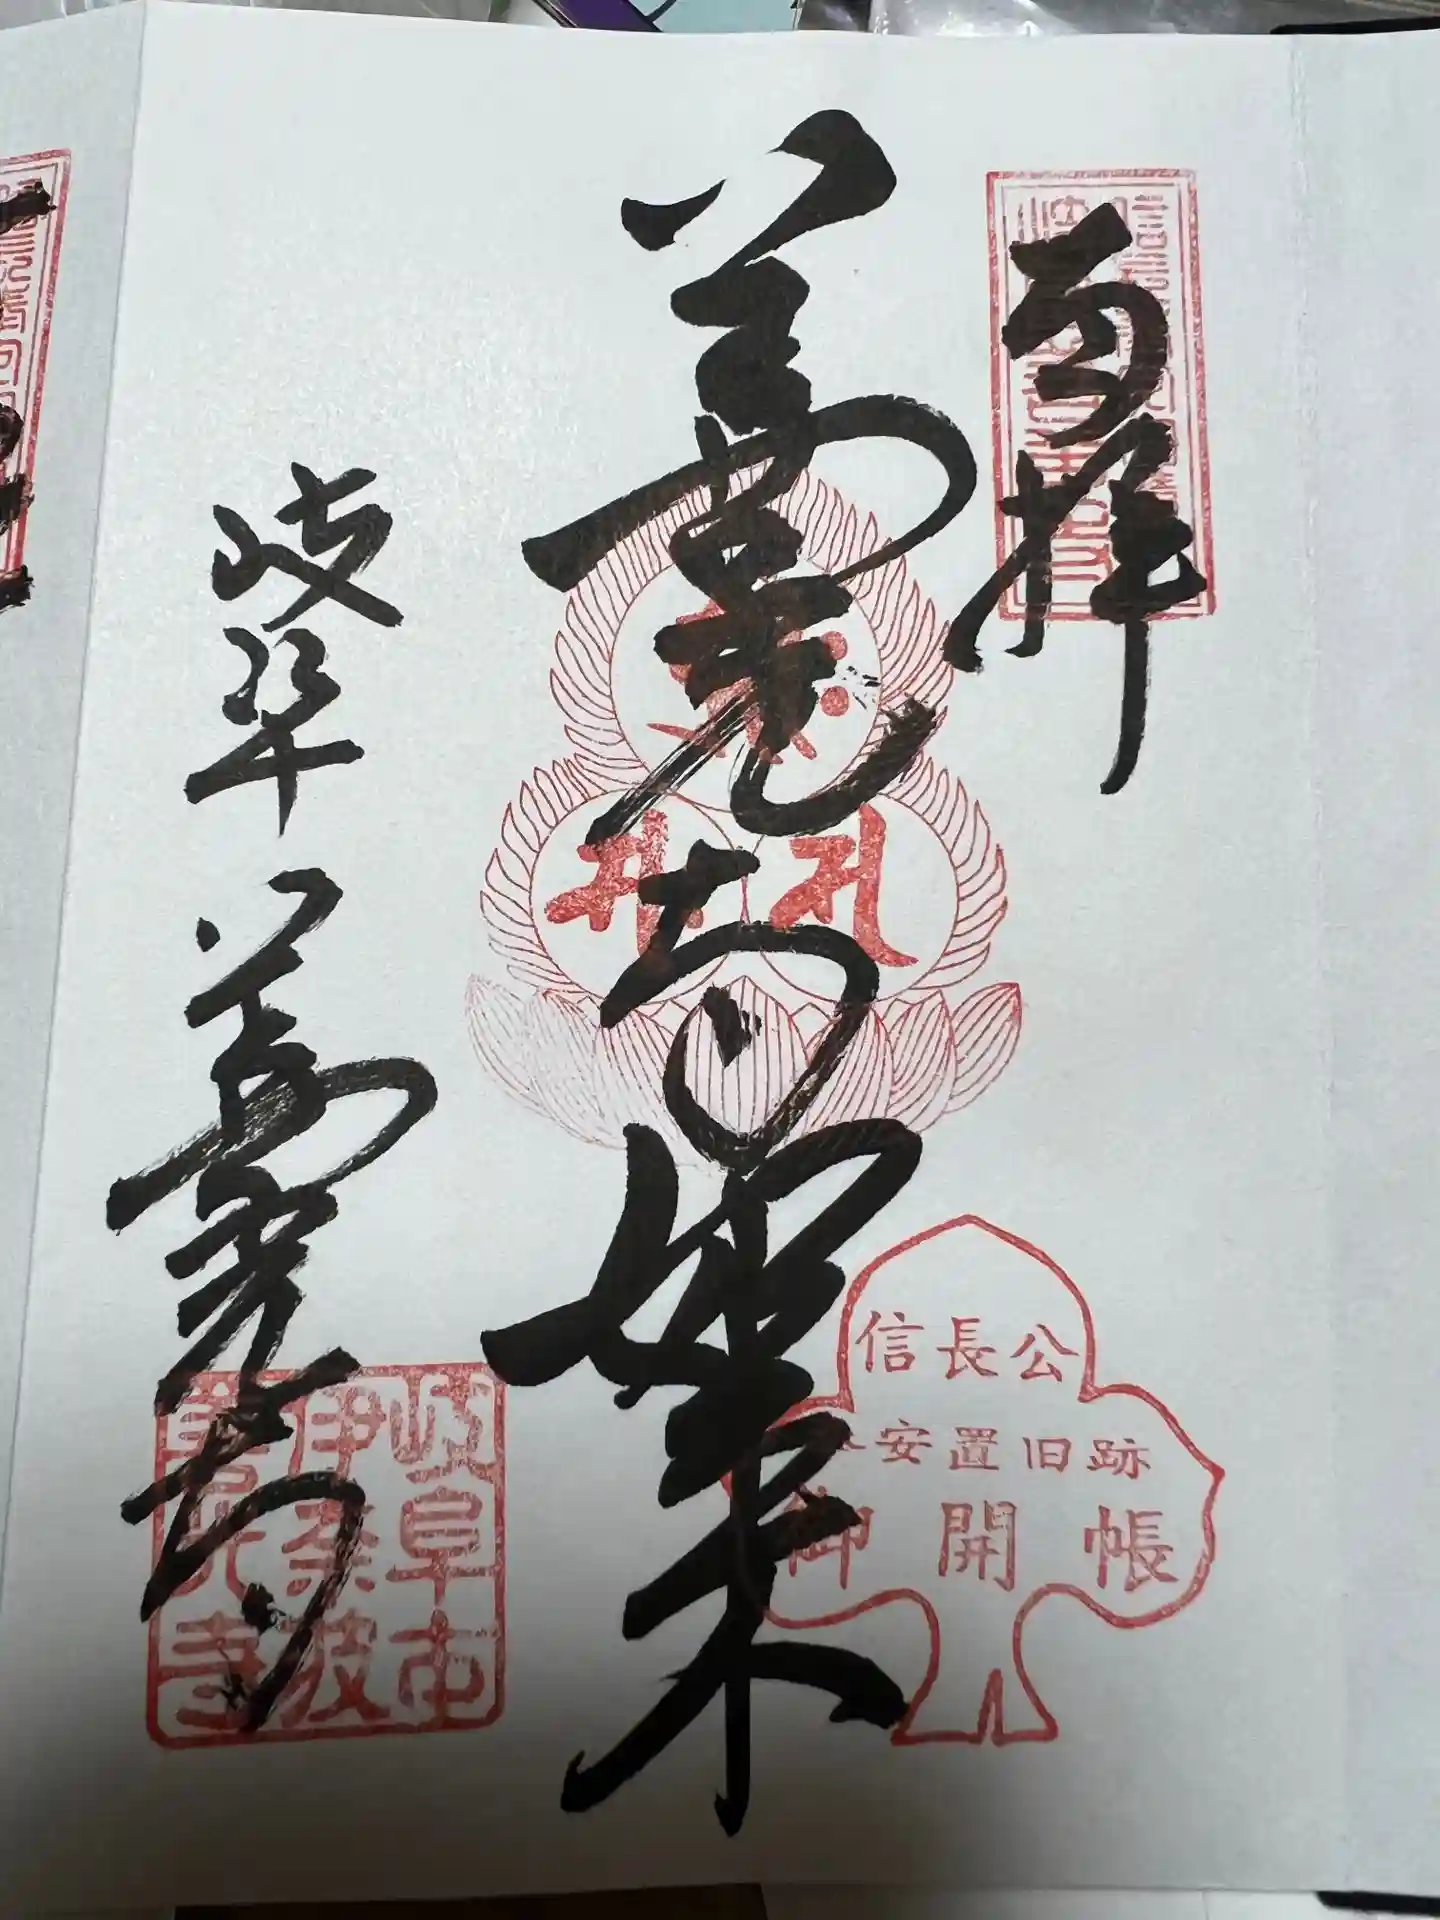 奉拝
善光寺如来
岐阜 善光寺
信長公
安置旧跡
御開帳
岐阜市
伊奈波
善光寺